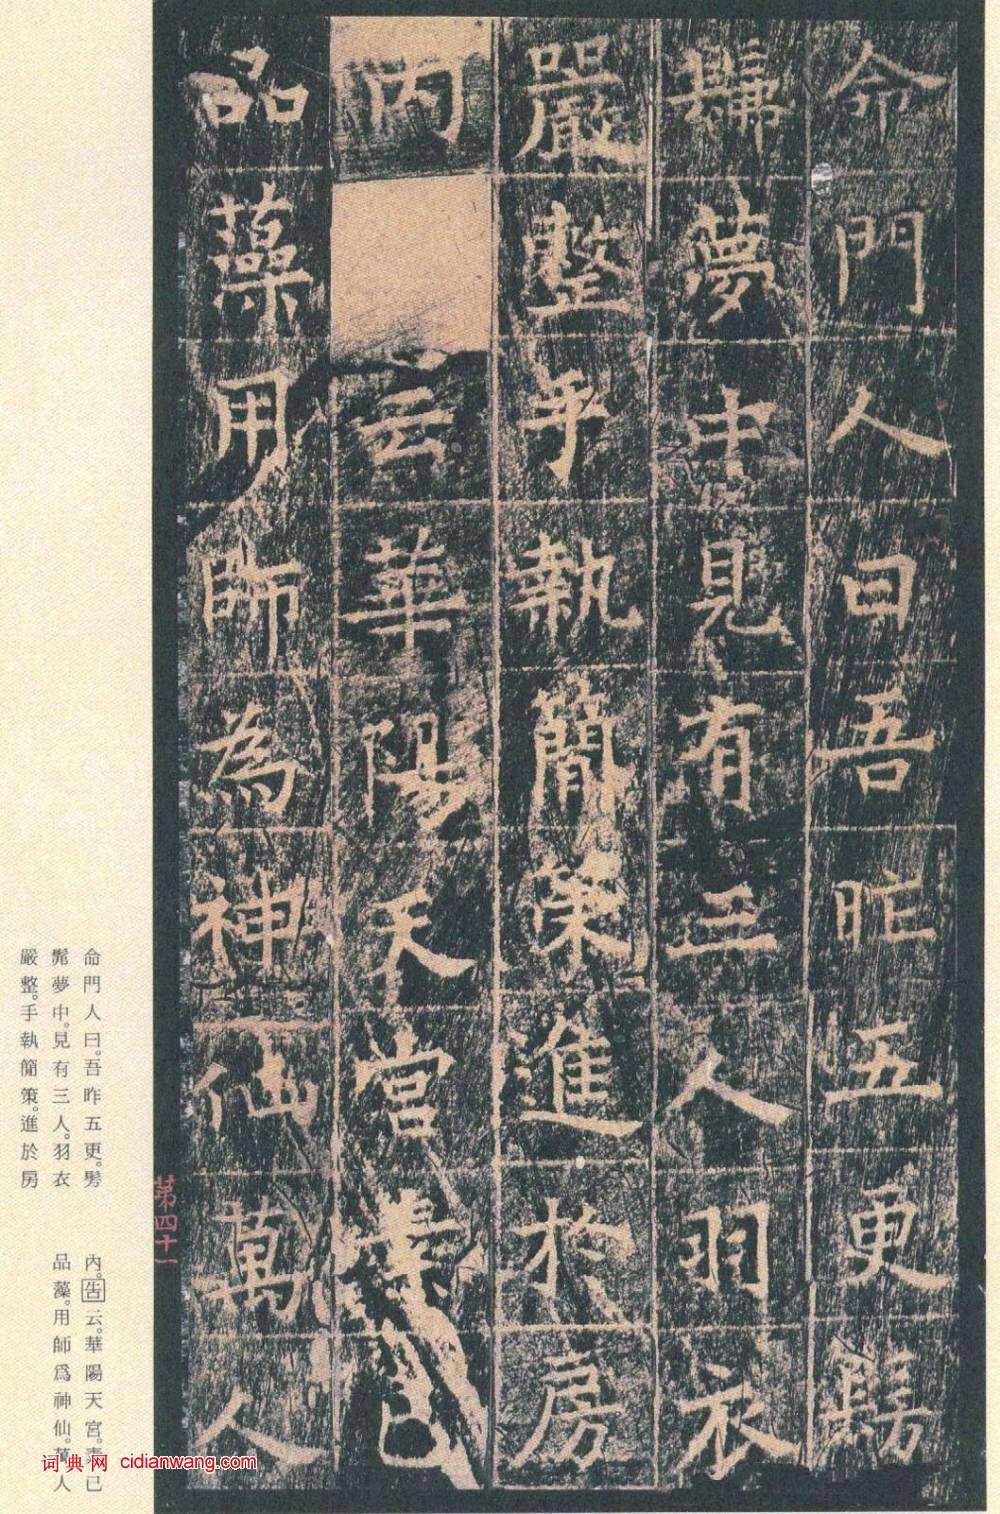 命門人曰吾昨五更髣
髴夢中見有三人羽衣
嚴整手執簡策進於房
内云華陽天宮素已
品藻用師為神仙萬人
第四十一
命門人曰。吾昨五更。髣
髴夢中。見有三人。羽衣
嚴整。手執簡策。進於房
內。告云。華陽天宮。素已
品藻。用師爲神仙。萬人
词典网 cidianwang.com